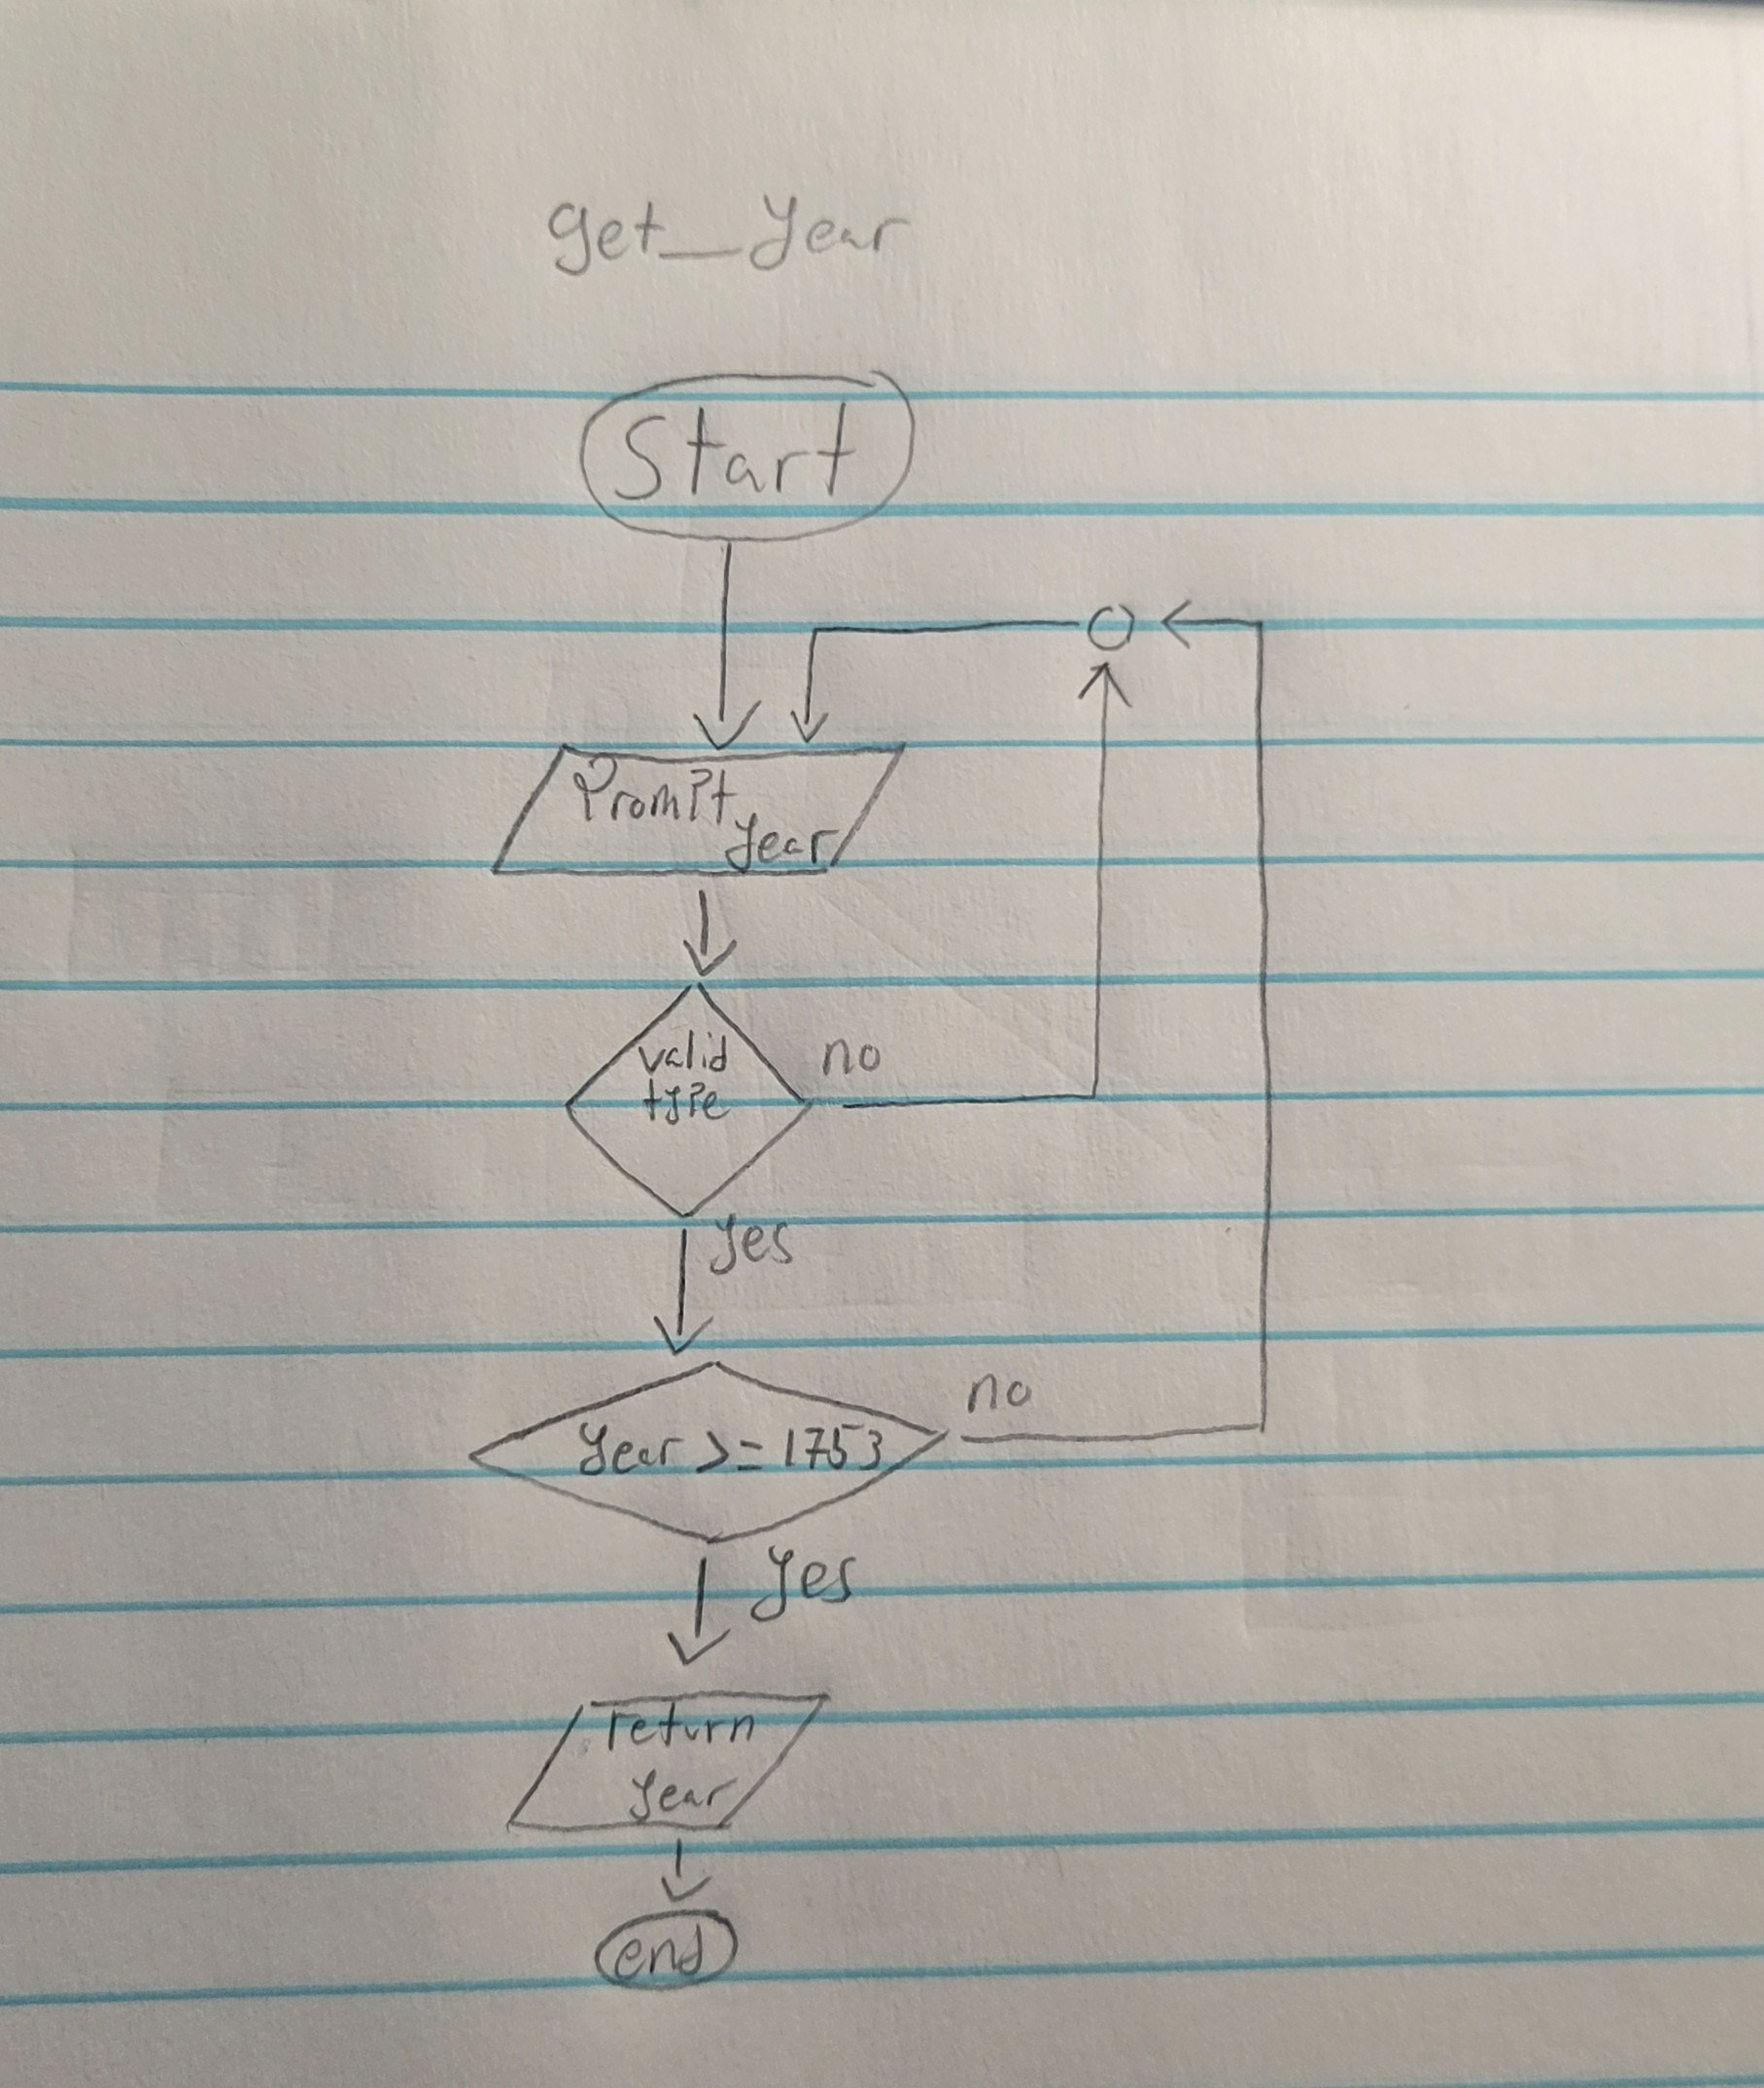 get_year
Start
Prompt
year
valid
type
no
yes
year >= 1753
no
yes
return
year
end